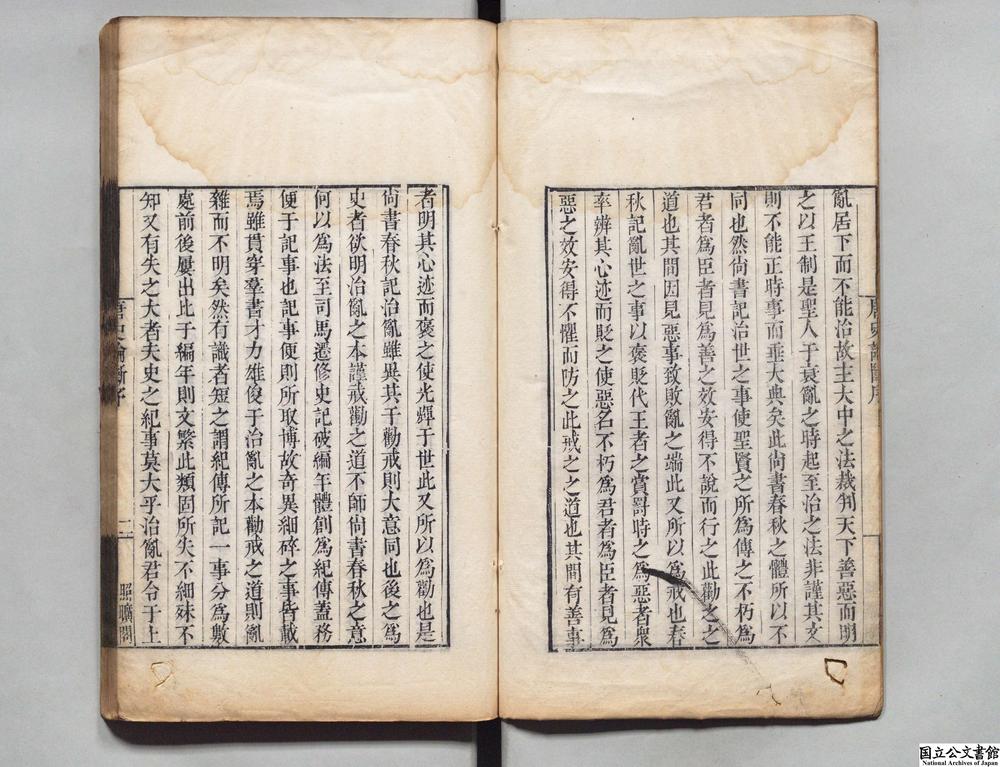 亂居下而不能治故主大中之法裁判天下善惡而明
之以王制是聖人于衰亂之時起至治之法非謹其文
則不能正時事而垂大典矣此尚書春秋之體所以不
同也然尚書記治世之事使聖賢之所爲傳之不朽爲
君者爲臣者見爲善之效安得不說而行之此勸之之
道也其間因見惡事致敗亂之端此又所以爲戒也春
秋記亂世之事以褒貶代王者之賞罰時之爲惡者衆
率辨其心迹而貶之使惡名不朽爲君者爲臣者見爲
惡之效安得不懼而防之此戒之之道也其間有善事
者明其心迹而褒之使光輝于世此又所以爲勸也是
尚書春秋記治亂雖異其于勸戒則大意同也後之爲
史者欲明治亂之本謹戒勸之道不師尚書春秋之意
何以爲法至司馬遷修史記破編年體創爲紀傳蓋務
便于記事也記事便則所取博故奇異細碎之事皆載
焉雖貫穿羣書才力雄俊于治亂之本勸戒之道則亂
雜而不明矣然有識者短之謂紀傳所記一事分爲數
處前後屢出比于編年則文繁此類固所失不細殊不
知又有失之大者夫史之紀事莫大乎治亂君令于上
唐史論斷序
二
照曠閣
国立公文書館
National Archives of Japan